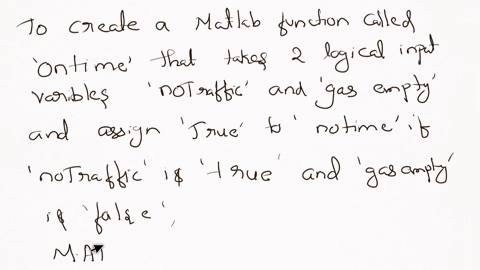 To create a Matlab function called
'Ontime' that takes 2 logical input
varibles 'noTraffic' and 'gas empty'
and assign 'True' to 'notime' if
'noTraffic' is 'true' and 'gas empty'
is 'false',
MAT